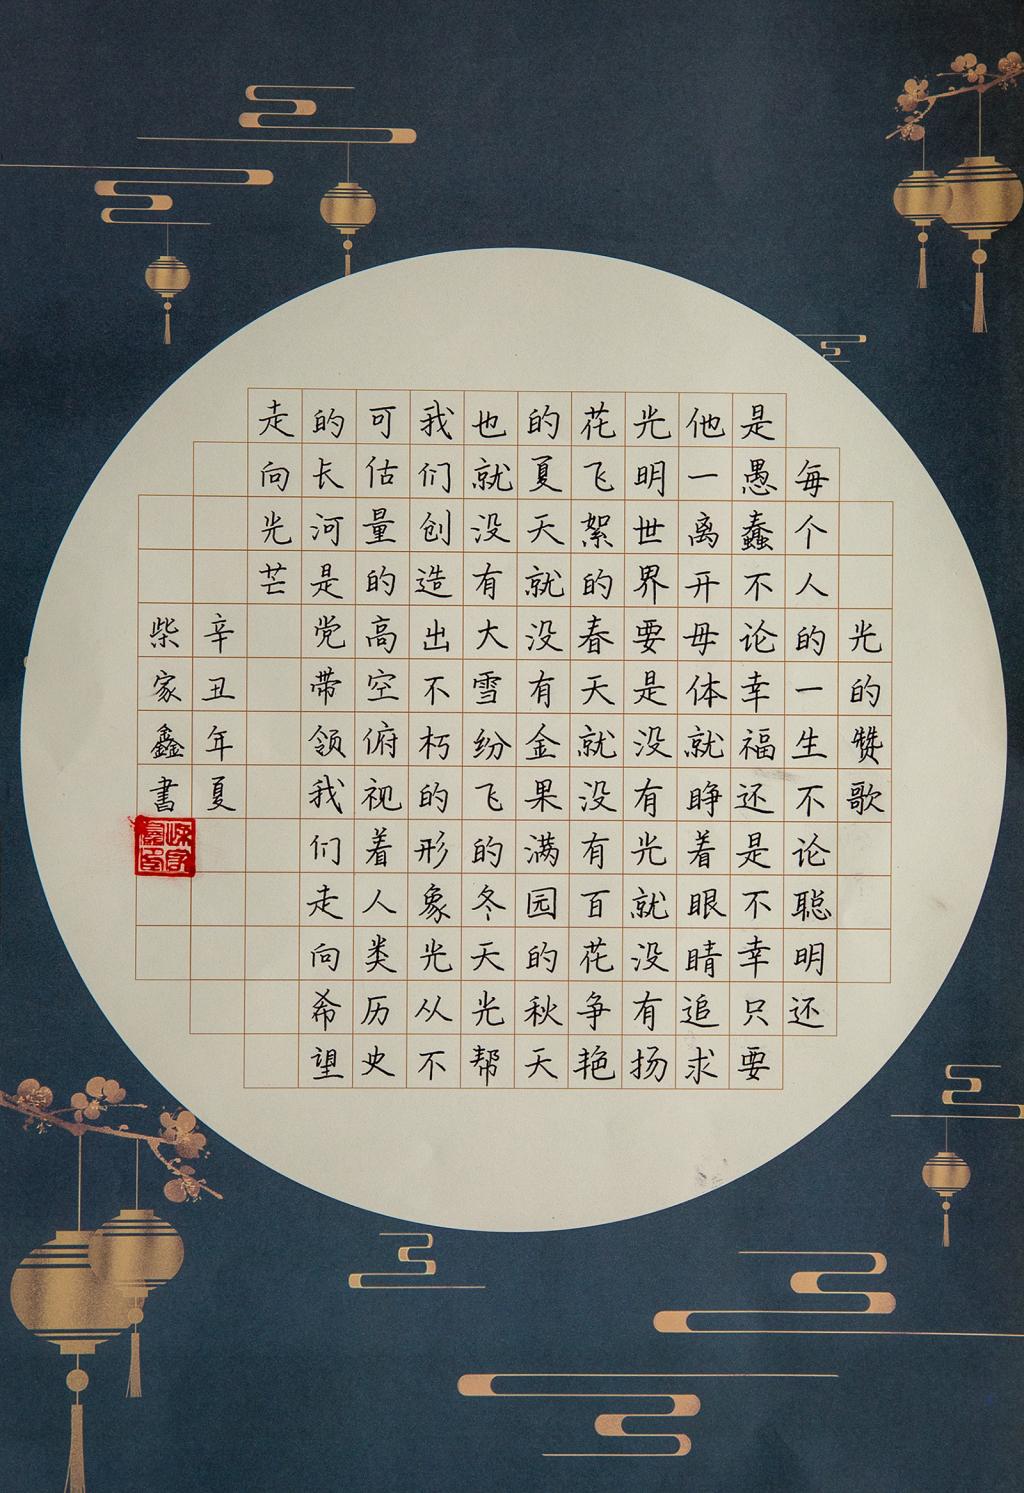 光的赞歌
每个人的一生不论聪明还
是愚蠢不论幸福还是不幸只要
他一离开母体就睁着眼睛追求
光明世界要是没有光就没有扬
花飞絮的春天就没有百花争艳
的夏天就没有金果满园的秋天
也就没有大雪纷飞的冬天光帮
我们创造出不朽的形象光从不
可估量的高空俯视着人类历史
的长河是党带领我们走向希望
走向光芒
辛丑年夏
柴家鑫書